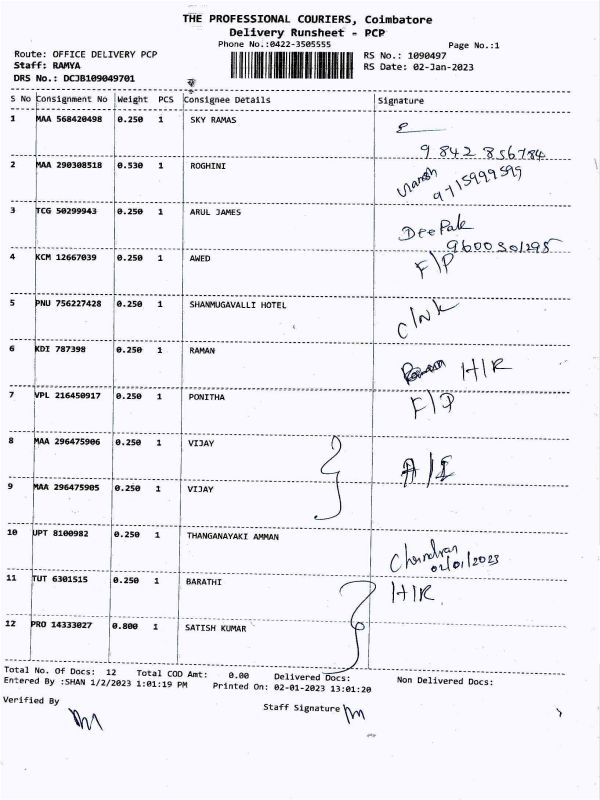 THE PROFESSIONAL COURIERS, Coimbatore
Delivery Runsheet - PCP
Phone No.:0422-3505555 Page No.:1
Route: OFFICE DELIVERY PCP RS No.: 1090497
Staff: RAMYA RS Date: 02-Jan-2023
DRS No.: DCJB109049701
S No Consignment No Weight PCS Consignee Details Signature
1 MAA 568420498 0.250 1 SKY RAMAS
9 842 856784
2 MAA 290308518 0.530 1 ROGHINI
9715999599
3 TCG 50299943 0.250 1 ARUL JAMES DeePak
9600301295
4 KCM 12667039 0.250 1 AWED F/P
5 PNU 756227428 0.250 1 SHANMUGAVALLI HOTEL C/NK
6 KDI 787398 0.250 1 RAMAN H/R
7 VPL 216450917 0.250 1 PONITHA F/P
8 MAA 296475906 0.250 1 VIJAY
9 MAA 296475905 0.250 1 VIJAY
10 UPT 8100982 0.250 1 THANGANAYAKI AMMAN Chandran
02/01/2023
11 TUT 6301515 0.250 1 BARATHI H/R
12 PRO 14333027 0.800 1 SATISH KUMAR
Total No. Of Docs: 12 Total COD Amt: 0.00 Delivered Docs: Non Delivered Docs:
Entered By :SHAN 1/2/2023 1:01:19 PM Printed On: 02-01-2023 13:01:20
Verified By Staff Signature